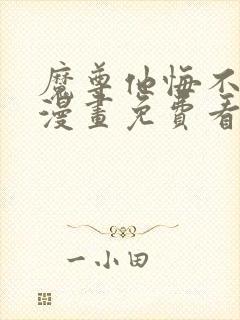 魔尊他悔不
漫畫免費看
一小田